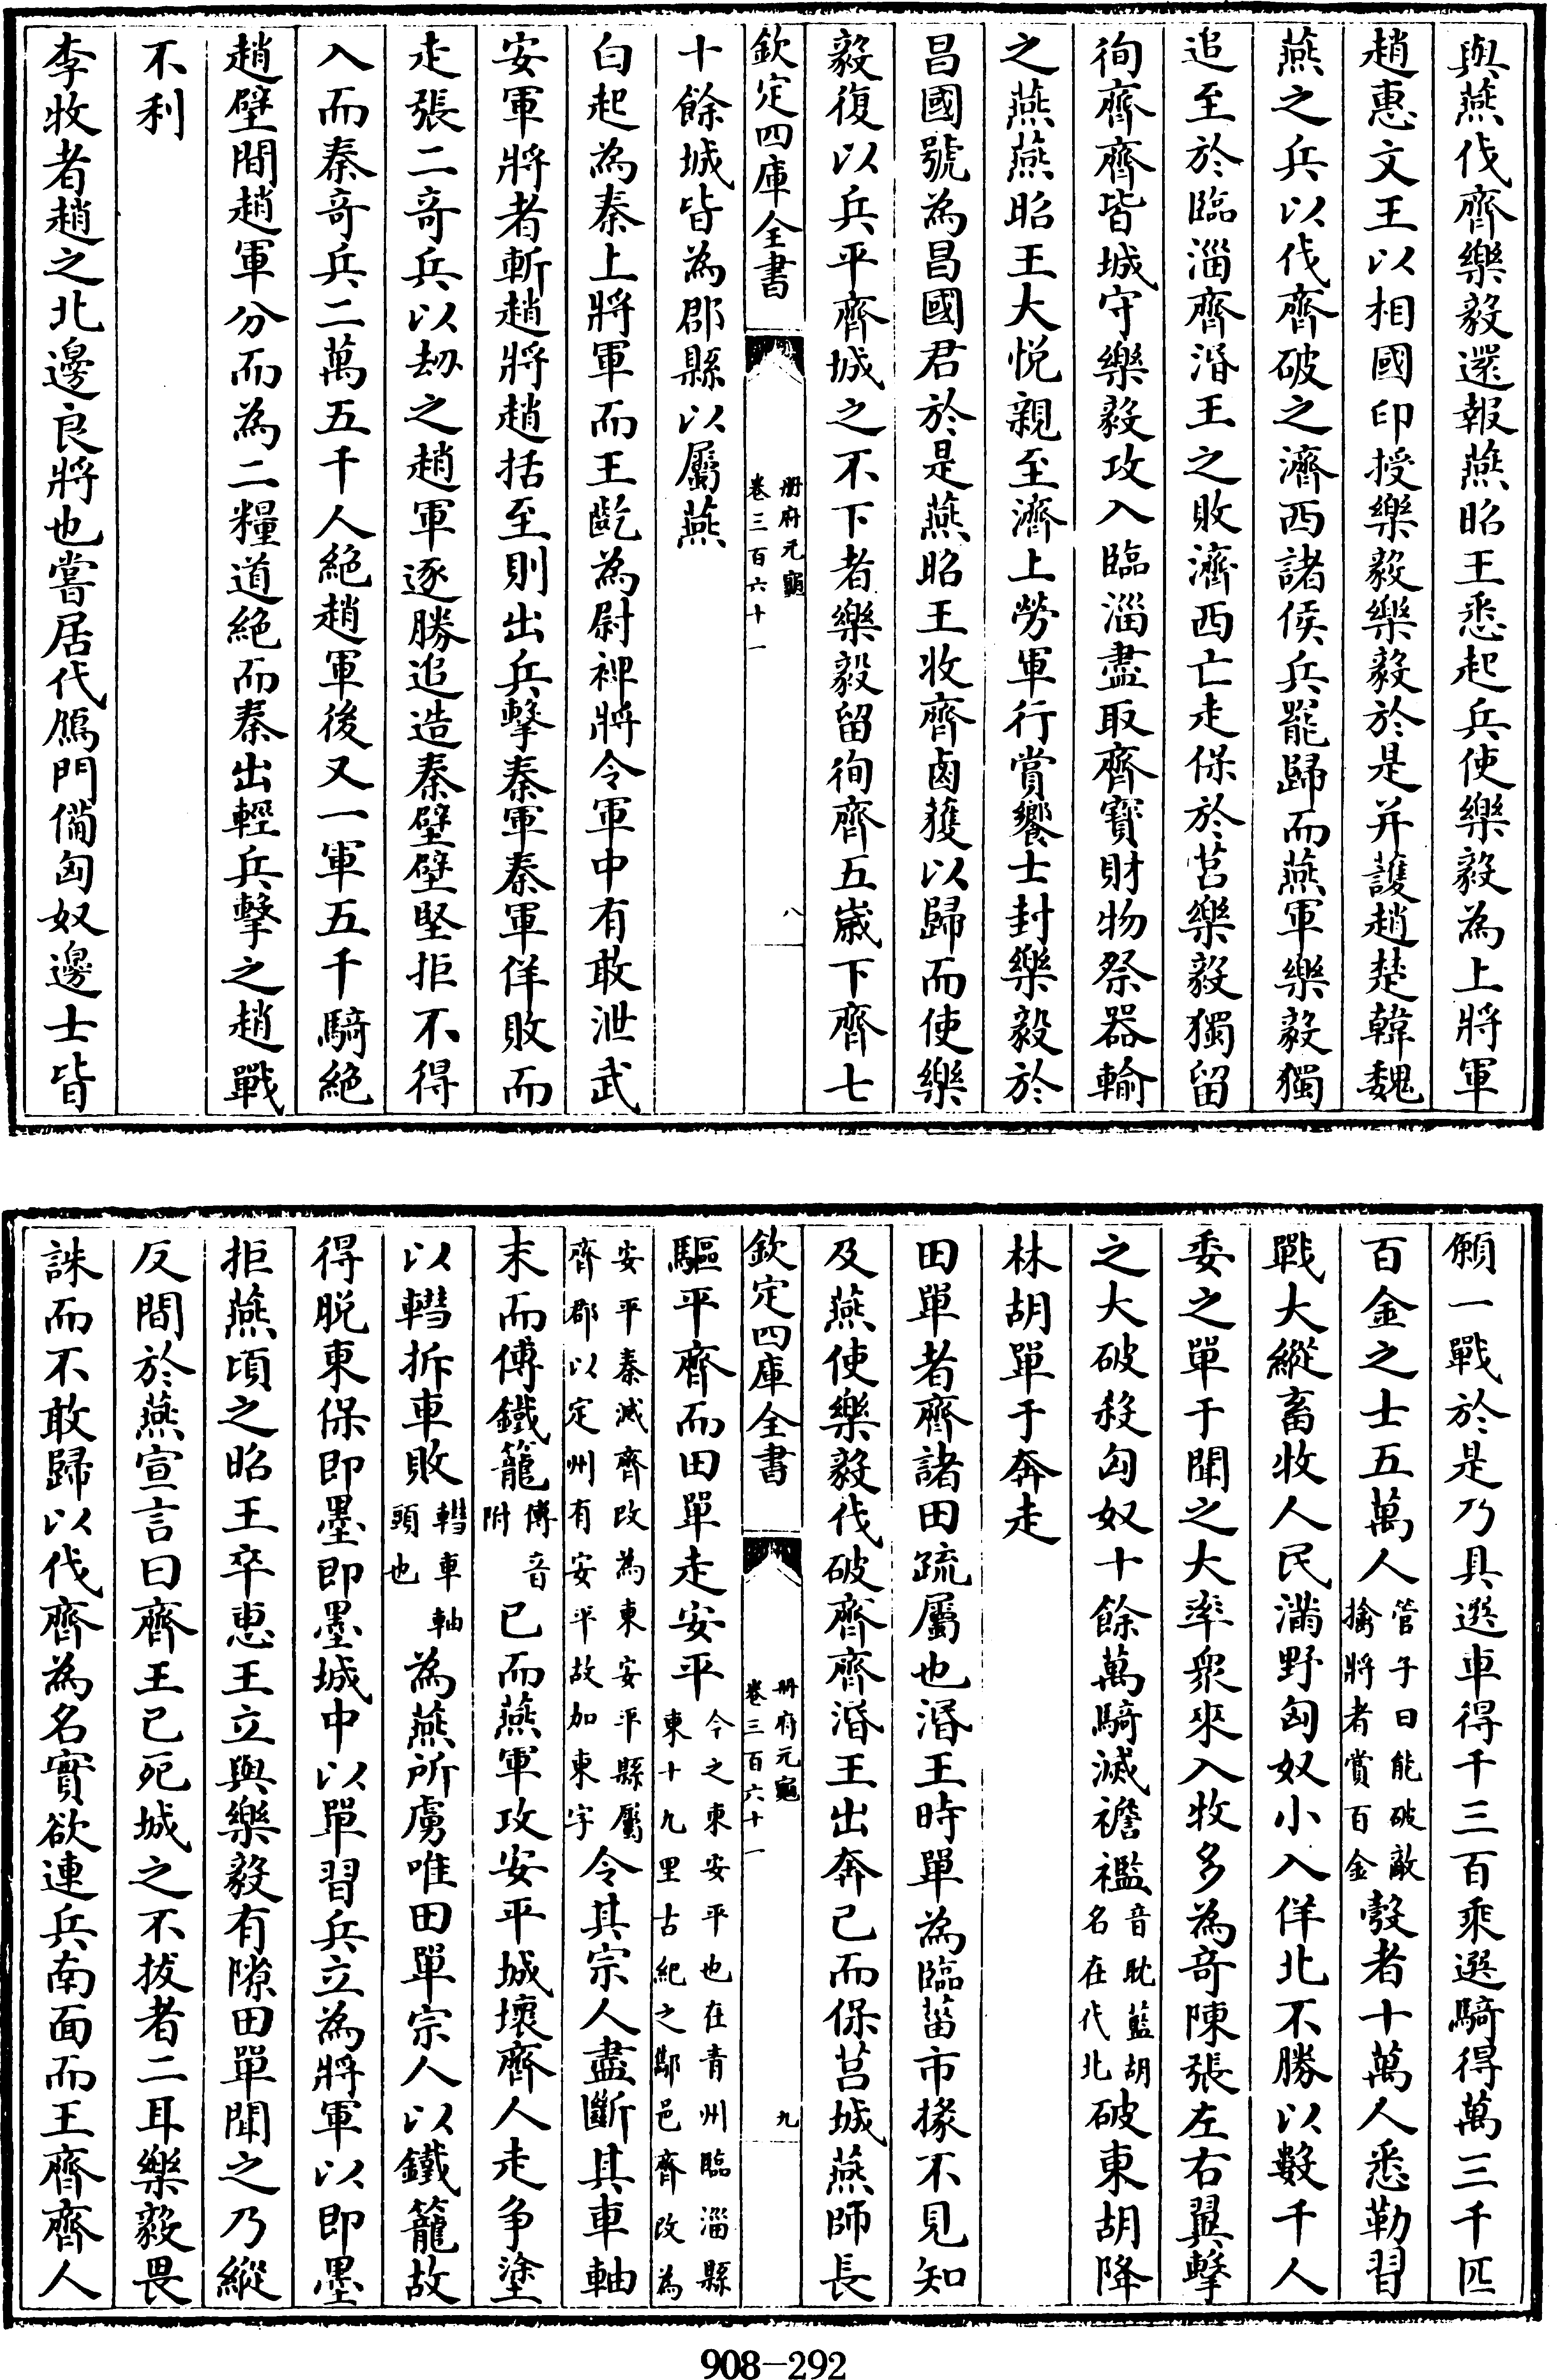 與燕伐齊樂毅還報燕昭王悉起兵使樂毅為上將軍
趙惠文王以相國印授樂毅樂毅於是并護趙楚韓魏
燕之兵以伐齊破之濟西諸侯兵罷歸而燕軍樂毅獨
追至於臨淄齊湣王之敗濟西亡走保於莒樂毅獨留
徇齊齊皆城守樂毅攻入臨淄盡取齊寶財物祭器輸
之燕燕昭王大悅親至濟上勞軍行賞饗士封樂毅於
昌國號為昌國君於是燕昭王收齊鹵獲以歸而使樂
毅復以兵平齊城之不下者樂毅留徇齊五嵗下齊七
欽定四庫全書
册府元龜
卷三百六十一
八
十餘城皆為郡縣以屬燕
白起為秦上將軍而王齕為尉裨將令軍中有敢泄武
安軍將者斬趙將趙括至則出兵擊秦軍秦軍佯敗而
走張二竒兵以刼之趙軍逐勝追造秦壁壁堅拒不得
入而秦竒兵二萬五千人絶趙軍後又一軍五千騎絶
趙壁間趙軍分而為二糧道絶而秦出輕兵擊之趙戰
不利
李牧者趙之北邊良將也嘗居代鴈門備匈奴邊士皆
願一戰於是乃具選車得千三百乘選騎得萬三千匹
百金之士五萬人
管子曰能破敵
擒將者賞百金
彀者十萬人悉勒習
戰大縱畜牧人民滿野匈奴小入佯北不勝以數千人
委之單于聞之大率衆來入牧多為竒陳張左右翼擊
之大破殺匈奴十餘萬騎滅襜襤
音耽藍胡
名在代北
破東胡降
林胡單于奔走
田單者齊諸田疏屬也湣王時單為臨菑市掾不見知
及燕使樂毅伐破齊齊湣王出奔已而保莒城燕師長
欽定四庫全書
册府元龜
卷三百六十一
九
驅平齊而田單走安平
今之東安平也在青州臨淄縣
東十九里古紀之酅邑齊改為
安平秦滅齊改為東安平縣屬
齊郡以定州有安平故加東字
令其宗人盡斷其車軸
末而傅鐵籠
傅音
附
已而燕軍攻安平城壞齊人走争塗
以轊拆車敗
轊車軸
頭也
為燕所虜唯田單宗人以鐵籠故
得脱東保即墨即墨城中以單習兵立為將軍以即墨
拒燕頃之昭王卒惠王立與樂毅有隙田單聞之乃縱
反間於燕宣言曰齊王已死城之不拔者二耳樂毅畏
誅而不敢歸以伐齊為名實欲連兵南面而王齊齊人
908-292